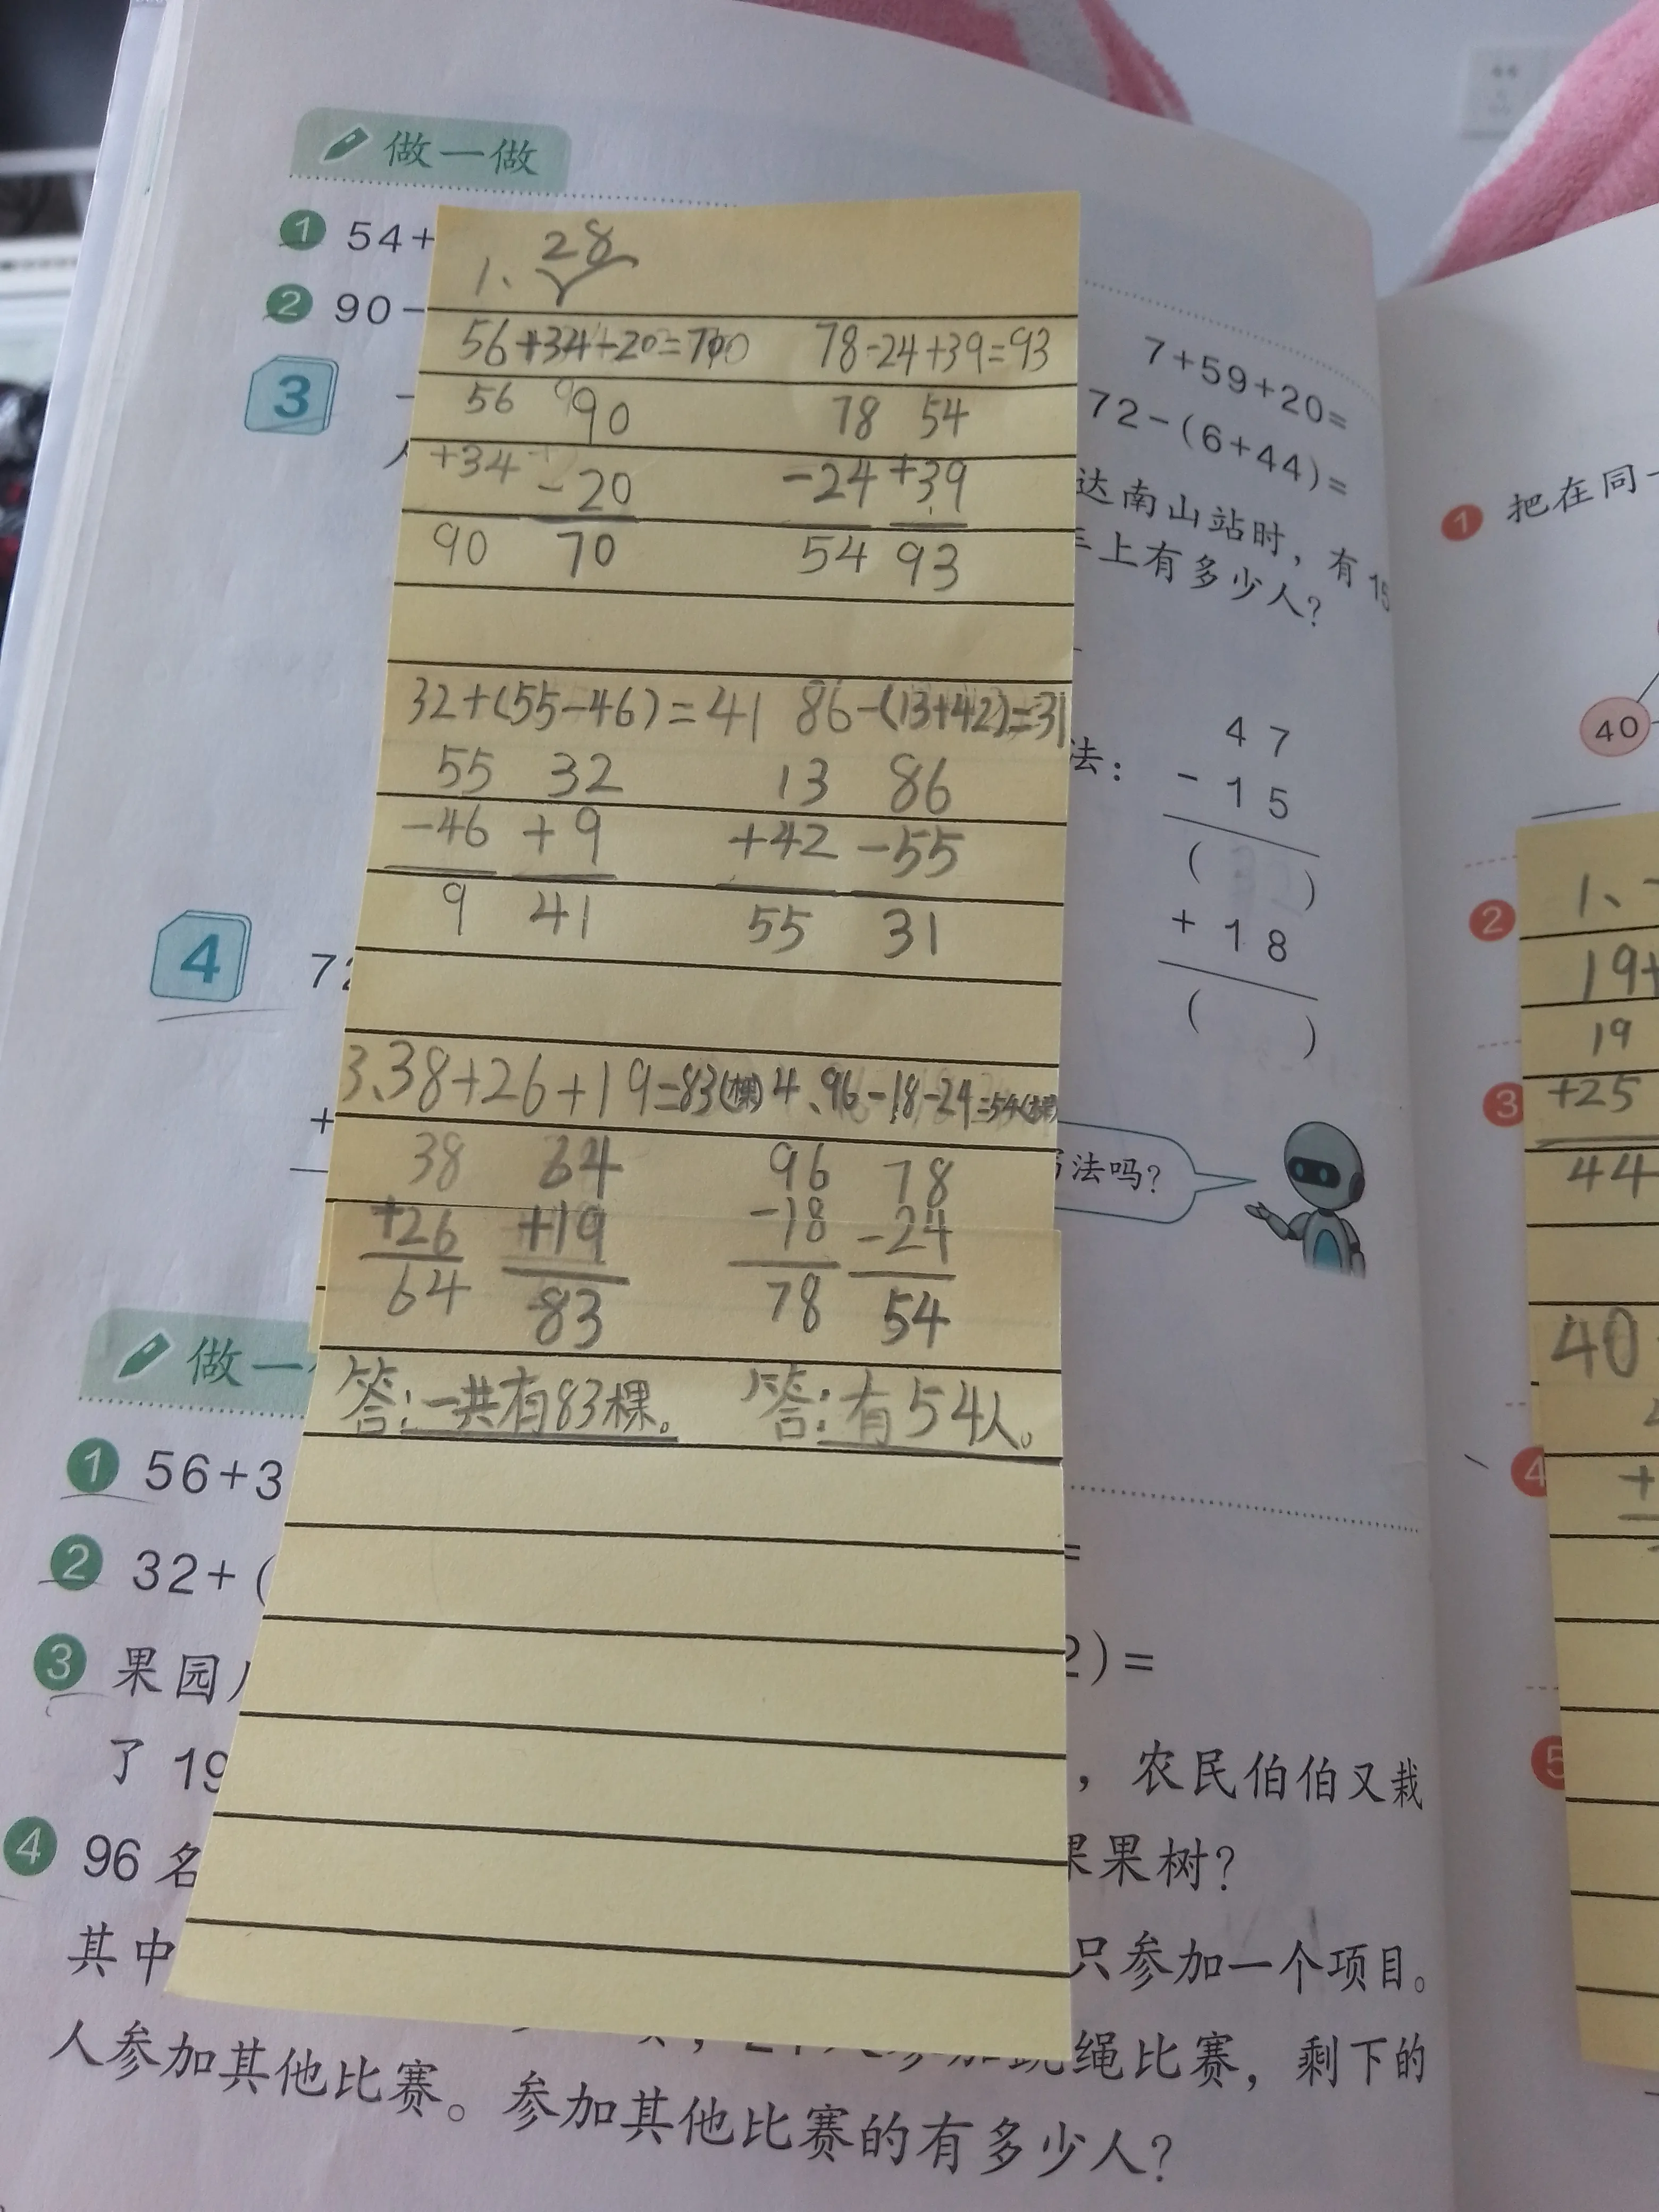 做一做
1 54+
2 90-
7+59+20=
72-(6+44)=
3
达南山站时，有15
车上有多少人?
法:
47
-15
( )
+18
( )
4
72
+
法吗?
1、
28
56+34-20=70
78-24+39=93
56 90 78 54
+34 -20 -24 +39
90 70 54 93
32+(55-46)=41 86-(13+42)=31
55 32 13 86
-46 +9 +42 -55
9 41 55 31
3、38+26+19=83(棵) 4、96-18-24=54
38 64 96 78
+26 +19 -18 -24
64 83 78 54
答:一共有83棵。 答:有54人。
做一
1 56+3
=
2 32+(
2)=
3 果园
，农民伯伯又栽
了19
果树?
4 96名
其中
只参加一个项目。
绳比赛，剩下的
人参加其他比赛。参加其他比赛的有多少人?
1 把在同一
40
2
3
4
5
1、
19+
19
+25
44
40
+